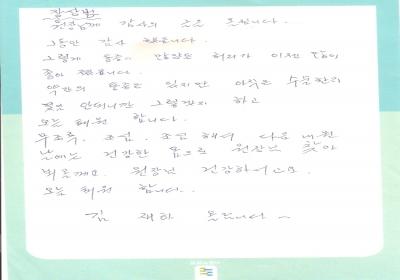 원장님께 감사의 글을 올립니다.
그동안 감사 했습니다.
그렇게 통증이 많았던 허리가 이제 많이
좋아 졌습니다.
약간의 통증은 있지만 아직은 수술한지
얼마 안되니깐 그렇겠지 하고
오늘 퇴원 합니다.
무조록, 조심, 조심 해서 다음 내원
날에는 건강한 몸으로 원장님 찾아
뵈올께요. 원장님 건강하세요.
오늘 퇴원 합니다.
김 재하 올립니다 ~